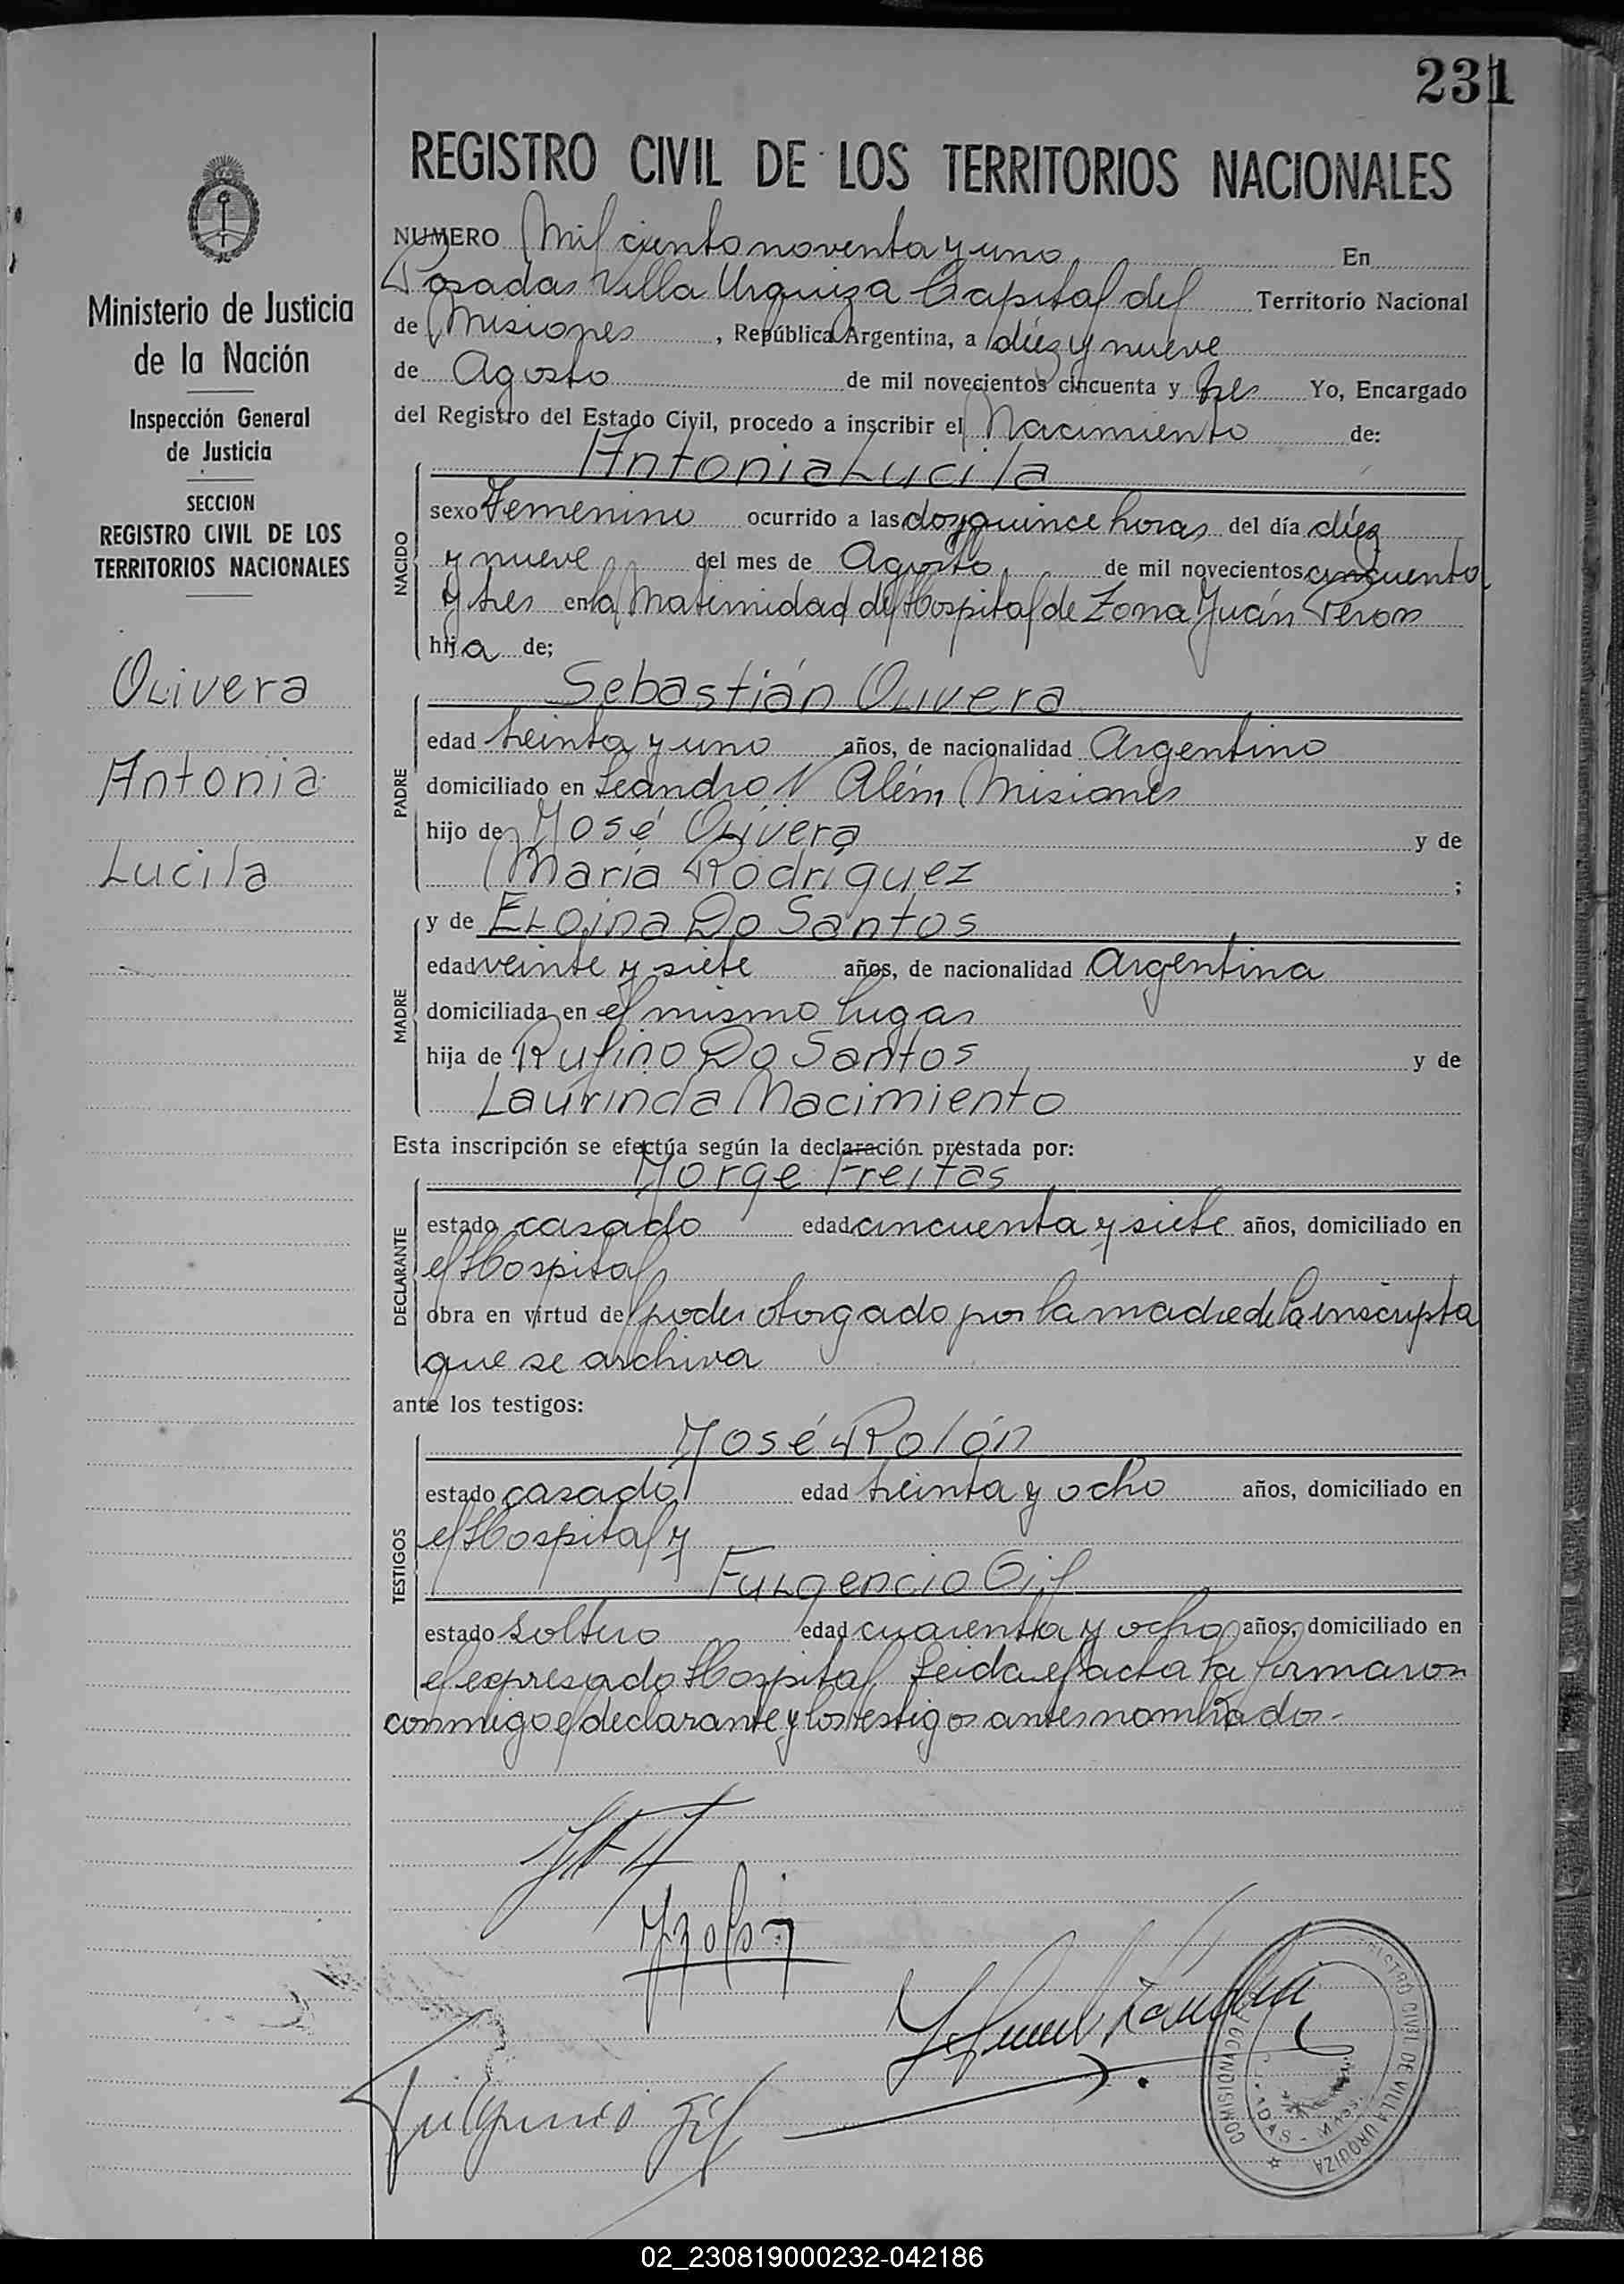 231
REGISTRO CIVIL DE LOS TERRITORIOS NACIONALES
Ministerio de Justicia
de la Nación
Inspección General
de Justicia
SECCION
REGISTRO CIVIL DE LOS
TERRITORIOS NACIONALES
Olivera
Antonia
Lucila
NUMERO Mil ciento noventa y uno En
Posadas Villa Urquiza Capital del Territorio Nacional
de Misiones, República Argentina, a diéz y nueve
de Agosto de mil novecientos cincuenta y tres Yo, Encargado
del Registro del Estado Civil, procedo a inscribir el Nacimiento de:
Antonia Lucila
NACIDO
sexo Femenino ocurrido a las dos y quince horas del día diéz
y nueve del mes de Agosto de mil novecientos cincuenta
y tres en la Maternidad del Hospital de Zona Juán Peron
hija de;
Sebastián Olivera
PADRE
edad treinta y uno años, de nacionalidad Argentino
domiciliado en Leandro N Além Misiones
hijo de José Olivera y de
María Rodríguez ;
y de Eloina Do Santos
MADRE
edad veinte y siete años, de nacionalidad Argentina
domiciliada en el mismo lugar
hija de Rufino Do Santos y de
Laurinda Nacimiento
Esta inscripción se efectúa según la declaración prestada por:
Jorge Freitas
DECLARANTE
estado casado edad cincuenta y siete años, domiciliado en
el Hospital
obra en virtud del poder otorgado por la madre de la inscripta
que se archiva
ante los testigos:
José Rolón
TESTIGOS
estado casado edad treinta y ocho años, domiciliado en
el Hospital y
Fulgencio Gil
estado soltero edad cuarenta y ocho años, domiciliado en
el expresado Hospital, Leida el acta la firmaron
conmigo el declarante y los testigos antes nombrados.-
Fulgencio Gil
REGISTRO CIVIL DE VILLA URQUIZA
02_230819000232-042186